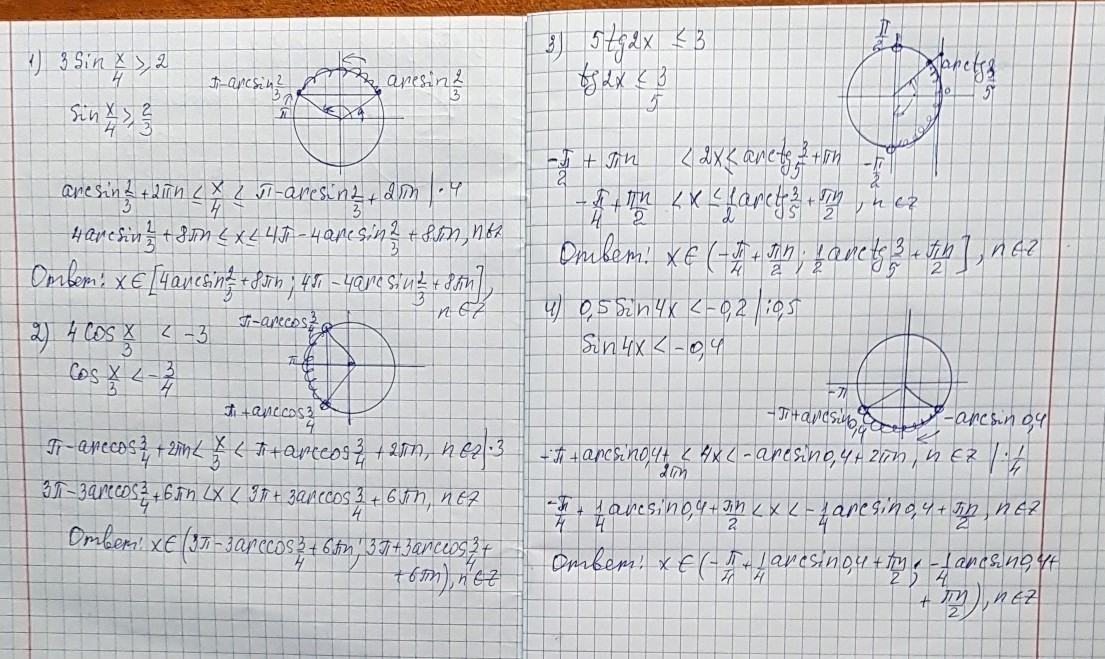 1) 3 Sin x/4 ⩾ 2
Sin x/4 ⩾ 2/3
π-arcsin 2/3
arcsin 2/3
π
arcsin 2/3 + 2πn ≤ x/4 ≤ π-arcsin 2/3 + 2πn | · 4
4arcsin 2/3 + 8πn ≤ x ≤ 4π - 4arcsin 2/3 + 8πn, n∈z
Ответ: x∈[4arcsin 2/3 + 8πn; 4π - 4arcsin 2/3 + 8πn],
n∈z
2) 4 Cos x/3 < -3
Cos x/3 < -3/4
π-arccos 3/4
π
π+arccos 3/4
π-arccos 3/4 + 2πn < x/3 < π+arccos 3/4 + 2πn, n∈z | · 3
3π-3arccos 3/4 + 6πn < x < 3π + 3arccos 3/4 + 6πn, n∈z
Ответ: x∈(3π-3arccos 3/4 + 6πn; 3π+3arccos 3/4 +
+ 6πn), n∈z
3) 5tg2x ≤ 3
tg2x ≤ 3/5
π/2
arctg 3/5
0
-π/2
-π/2 + πn < 2x ≤ arctg 3/5 + πn
-π/4 + πn/2 < x ≤ 1/2 arctg 3/5 + πn/2, n∈z
Ответ: x∈(-π/4 + πn/2; 1/2 arctg 3/5 + πn/2], n∈z
4) 0,5Sin4x < -0,2 | :0,5
Sin4x < -0,4
-π
-π+arcsin0,4
-arcsin0,4
-π + arcsin0,4 + 2πn < 4x < -arcsin0,4 + 2πn, n∈z | · 1/4
-π/4 + 1/4 arcsin0,4 + πn/2 < x < -1/4 arcsin0,4 + πn/2, n∈z
Ответ: x∈(-π/π + 1/4 arcsin0,4 + πn/2; -1/4 arcsin0,4 +
+ πn/2), n∈z